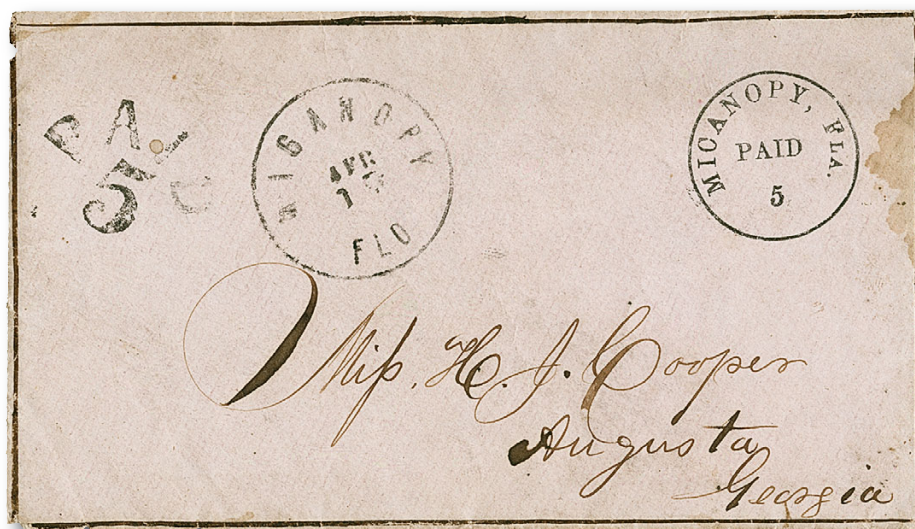 PA
5 C
MICANOPY
APR
FLO
MICANOPY, FLA.
PAID
5
Miſs. H. J. Cooper
Augusta
Georgia